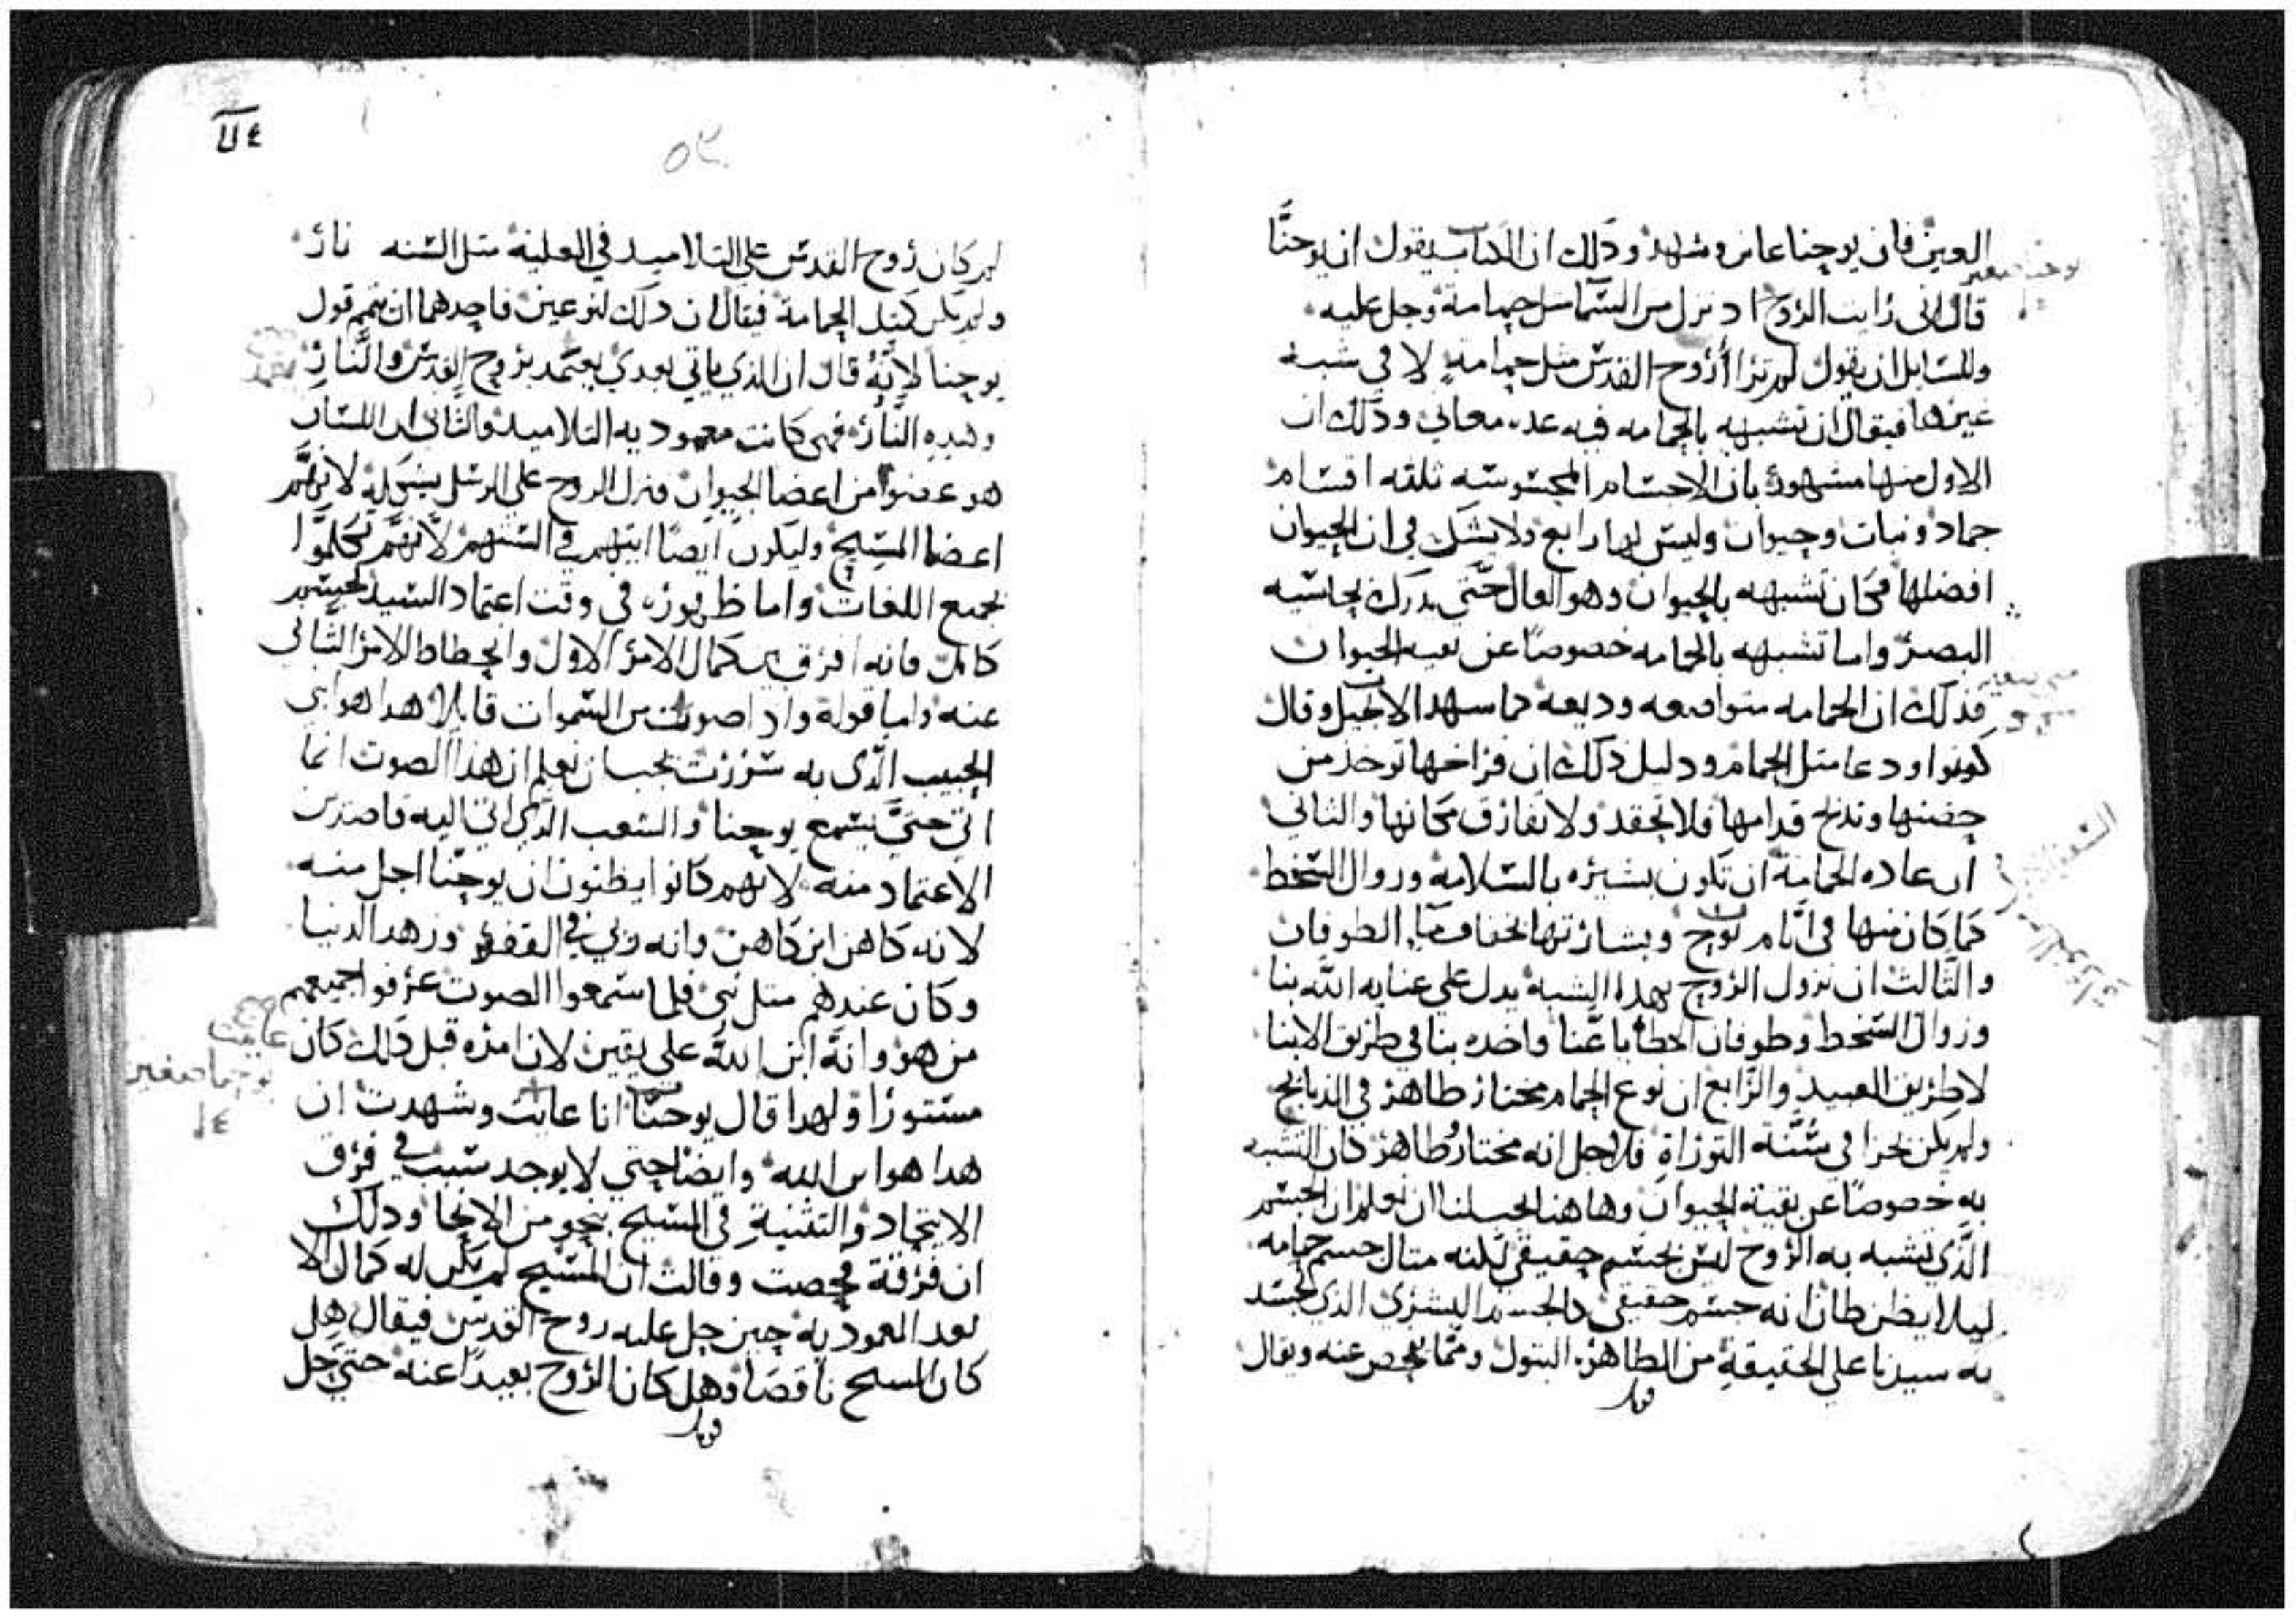 العين فان يوحنا عاين وشهد وذلك ان الكتاب يقول ان يوحنَّا
قال اني رايت الروح اد نزل من السما مثل حمامة وحل عليه
وللسايل ان يقول لم تزا أروح القدس مثل حمامةٍ لا في شبه
غيرها فيقال ان تشبهه بالحمامه فيه عده معاني وذلك ان
الاول منها مشهور بان الاجسام المحسوسه ثلثه اقسام
جماد ونبات وحيوان وليس لها رابع ولا يشك في ان الحيوان
افضلها فكان تشبهه بالحيوان وهو العال حتي يدرك بحاسه
البصر واما تشبهه بالحمامه خصوصًا عن بقيه الحيوان
فذلك ان الحمامه متواضعه وديعه كما شهد الانجيل وقال
كونوا ودعا مثل الحمام ودليل ذلك ان فراخها توخذ من
حضنها وتذبح قدامها فلا تحقد ولا تفارق مكانها والثاني
ان عاده الحمامة ان تكون بشيره بالسلامه وزوال السخط
كما كان منها في ايَّام نوح وبشارتها بجفاف مآ الطوفان
والثالث ان نزول الروح بهذا الشبه يدل علي عنايه الله بنا
وزوال السخط وطوفان الخطايا عنَّا واخده بنا في طريق الابنا
لا طريق العبيد والرابع ان نوع الحمام مختار طاهر في الذبايح
ولم يكن نجزا في سُنَّة التوراةِ فلاجل انه مختار وُطاهر كان التشبه
به خصوصًا عن بقية الحيوان وهاهنا ان نعلم ان الجسم
الَّذي تشبه به الروح ليس بجسم حقيقي لكنه مثال جسم حمامه
ليلا يظن ظان انه جسم حقيقي كالجسم البشري الذي تجسَّد
به سيدنا علي الحقيقةِ من الطاهره البتول وممَّا يفحص عنه ويقال
يوحنا صغير
٥٢
لم كان روح القدس علي التلاميد في العلية مثل السنه نار
ولم يكن كمثل الحمامة فيقال ان دلك لنوعين فاحدهما ان يتمم قول
يوحنا لانَّهُ قال ان الذي ياتي بعدي يعمَّد بروح القدس والنَّارِ
وهذهِ النَّار فهي كانت معموديه التلاميد والثاني ان اللسان
هو عضوًا من اعضا الحيوان فنزل الروح علي الرسل بشكله لانهَّم
اعضا المسيح وليكون ايضًا ايتهم في السنهم لأنهَّم تكلمَّوا
بجميع اللغات واما ظهوره في وقت اعتماد السيد كجسم
كامل فانه افرق بين كمال الامر الاول وانحطاط الامر الثاني
عنه واما قوله واذا صوت من السموات قايلا هدا هو ابني
الحبيب الَّدي به سررت يجب ان نعلم ان هذا الصوت انما
اتي حتيَّ يسمع يوحنا والشعب الدي اتي اليه قاصدين
الاعتماد منه لانهم كانوا يظنون ان يوحنَّا اجل منه
لانه كاهن ابن كاهن وانه ربي في القفر وزهد الدنيا
وكان عندهم مثل نبي فلما سمعوا الصوت عرفوا جميعهم
من هو وانهَّ ابن اللهَّ علي يقين لان امره قبل ذلك كان
مستورًا ولهدا قال يوحنَّا انا عاينت وشهدت ان
هدا هو ابن الله وايضا حتي لا يوجد سبب في فرق
الاتحاد والتثنيةِ في المسيح بنحو من الانحا ودلك
ان فرقة فحصت وقالت ان المسيح لم يكن له كمال الا
بعد المعموديه حين حل عليه روح القدس فيقال هل
كان المسيح ناقصًا وهل كان الروح بعيدًا عنه حتيَّ حل
عاينت
يوحنا صغير